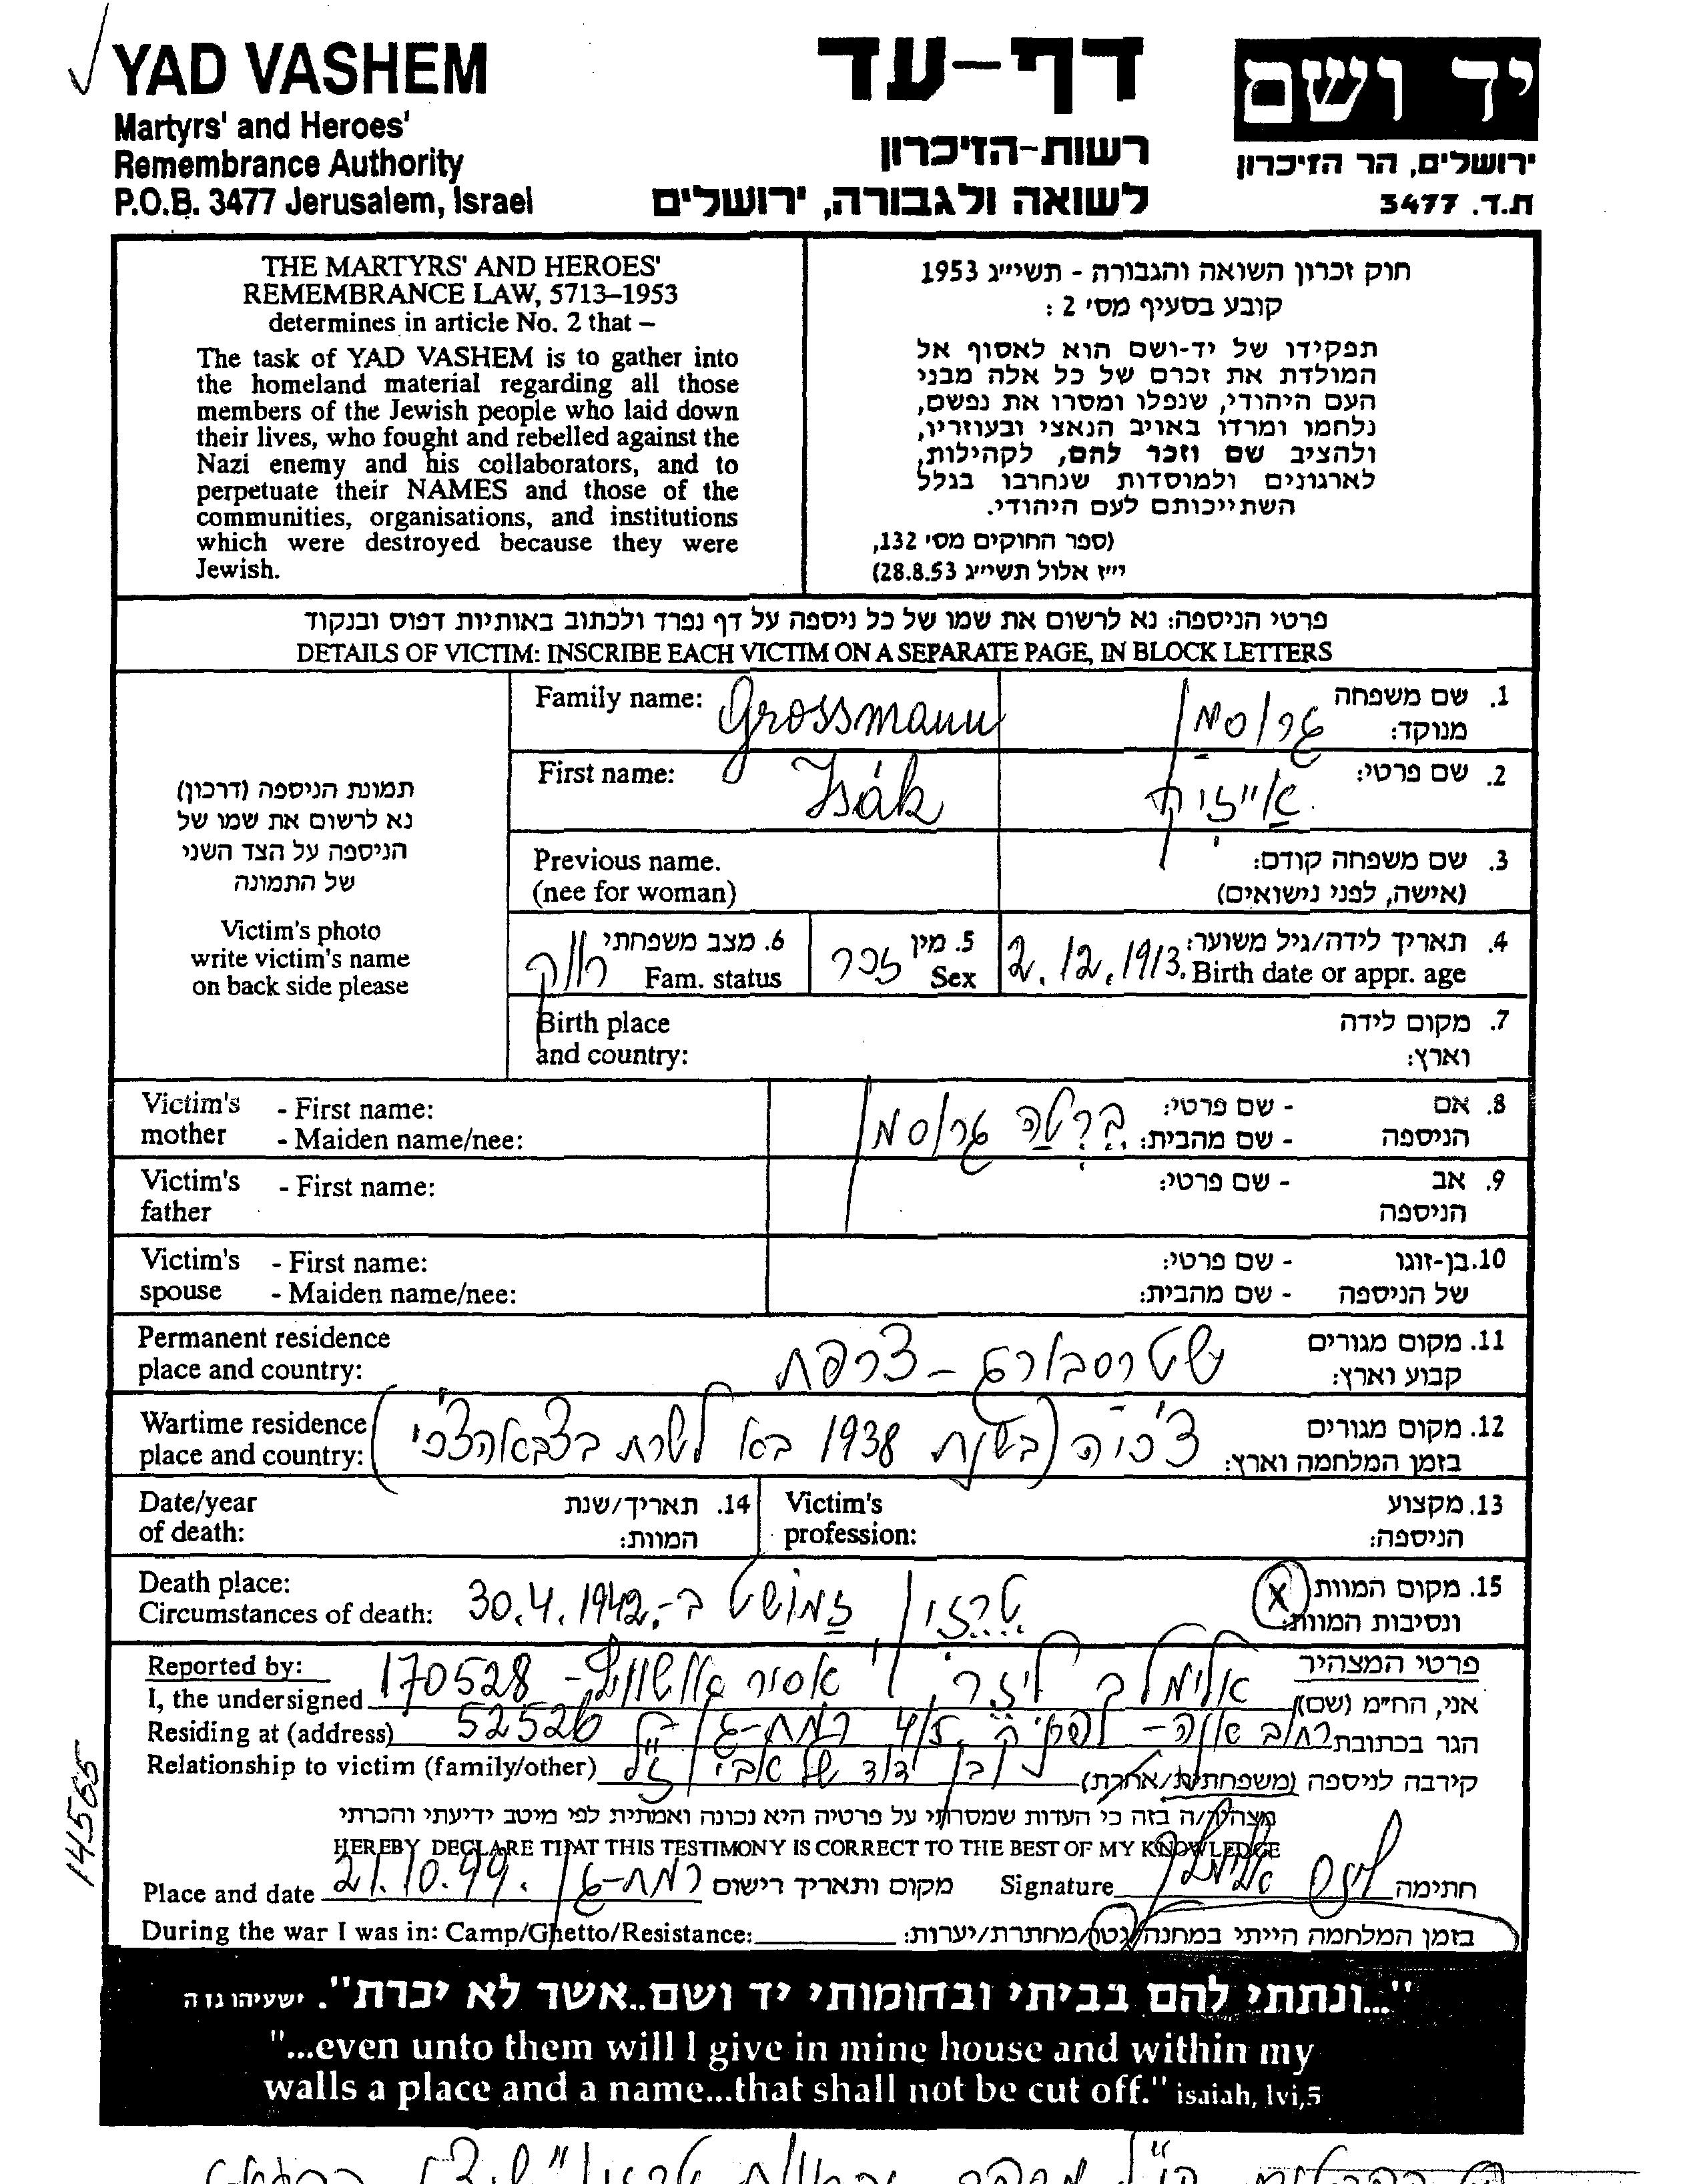 YAD VASHEM
Martyrs' and Heroes'
Remembrance Authority
P.O.B. 3477 Jerusalem, Israel
דף-עד
רשות-הזיכרון
לשואה ולגבורה, ירושלים
יד ושם
ירושלים, הר הזיכרון
ת.ד. 3477
THE MARTYRS' AND HEROES'
REMEMBRANCE LAW, 5713–1953
determines in article No. 2 that –
The task of YAD VASHEM is to gather into
the homeland material regarding all those
members of the Jewish people who laid down
their lives, who fought and rebelled against the
Nazi enemy and his collaborators, and to
perpetuate their NAMES and those of the
communities, organisations, and institutions
which were destroyed because they were
Jewish.
חוק זכרון השואה והגבורה - תשי״ג 1953
קובע בסעיף מס׳ 2 :
תפקידו של יד-ושם הוא לאסוף אל
המולדת את זכרם של כל אלה מבני
העם היהודי, שנפלו ומסרו את נפשם,
נלחמו ומרדו באויב הנאצי ובעוזריו,
ולהציב שם וזכר להם, לקהילות,
לארגונים ולמוסדות שנחרבו בגלל
השתייכותם לעם היהודי.
(ספר החוקים מס׳ 132,
י״ז אלול תשי״ג 28.8.53)
פרטי הניספה: נא לרשום את שמו של כל ניספה על דף נפרד ולכתוב באותיות דפוס ובנקוד
DETAILS OF VICTIM: INSCRIBE EACH VICTIM ON A SEPARATE PAGE, IN BLOCK LETTERS
תמונת הניספה (דרכון)
נא לרשום את שמו של
הניספה על הצד השני
של התמונה
Victim's photo
write victim's name
on back side please
Family name: Grossmann גרוסמן 1. שם משפחה
מנוקד:
First name: Izsák אייזיק 2. שם פרטי:
Previous name. 3. שם משפחה קודם:
(nee for woman) (אישה, לפני נישואים)
4. תאריך לידה/גיל משוער: 2.12.1913. Birth date or appr. age
5. מין זכר Sex
6. מצב משפחתי רווק Fam. status
Birth place 7. מקום לידה
and country: וארץ:
Victim's - First name: ברטה גרוסמן - שם פרטי: 8. אם
mother - Maiden name/nee: - שם מהבית: הניספה
Victim's - First name: - שם פרטי: 9. אב
father הניספה
Victim's - First name: - שם פרטי: 10. בן-זוגו
spouse - Maiden name/nee: - שם מהבית: של הניספה
Permanent residence שטרסבורג - צרפת 11. מקום מגורים
place and country: קבוע וארץ:
Wartime residence צ'כיה (בשנת 1938 בא לשרת בצבא הצ'כי) 12. מקום מגורים
place and country: בזמן המלחמה וארץ:
Date/year 14. תאריך/שנת
of death: המוות:
Victim's 13. מקצוע
profession: הניספה:
Death place: 15. מקום המוות X
Circumstances of death: ונסיבות המוות:
טרזין זמושט ב-30.4.1942
Reported by: פרטי המצהיר
I, the undersigned אני, הח״מ (שם) אלימלך ליזר, אסיר אושוויץ - 170528
Residing at (address) הגר בכתובת רמת-גן 52526
Relationship to victim (family/other) קירבה לניספה (משפחתית/אחרת) בן דוד של אבי ז״ל
מצהיר/ה בזה כי העדות שמסרתי על פרטיה היא נכונה ואמתית לפי מיטב ידיעתי והכרתי
HEREBY DECLARE THAT THIS TESTIMONY IS CORRECT TO THE BEST OF MY KNOWLEDGE
Place and date 21.10.99. רמת-גן מקום ותאריך רישום Signature חתימה
During the war I was in: Camp/Ghetto/Resistance: בזמן המלחמה הייתי במחנה/גטו/מחתרת/יערות:
14565
"...ונתתי להם בביתי ובחומותי יד ושם..אשר לא יכרת". ישעיהו נו ה
"...even unto them will I give in mine house and within my
walls a place and a name...that shall not be cut off." isaiah, lvi,5